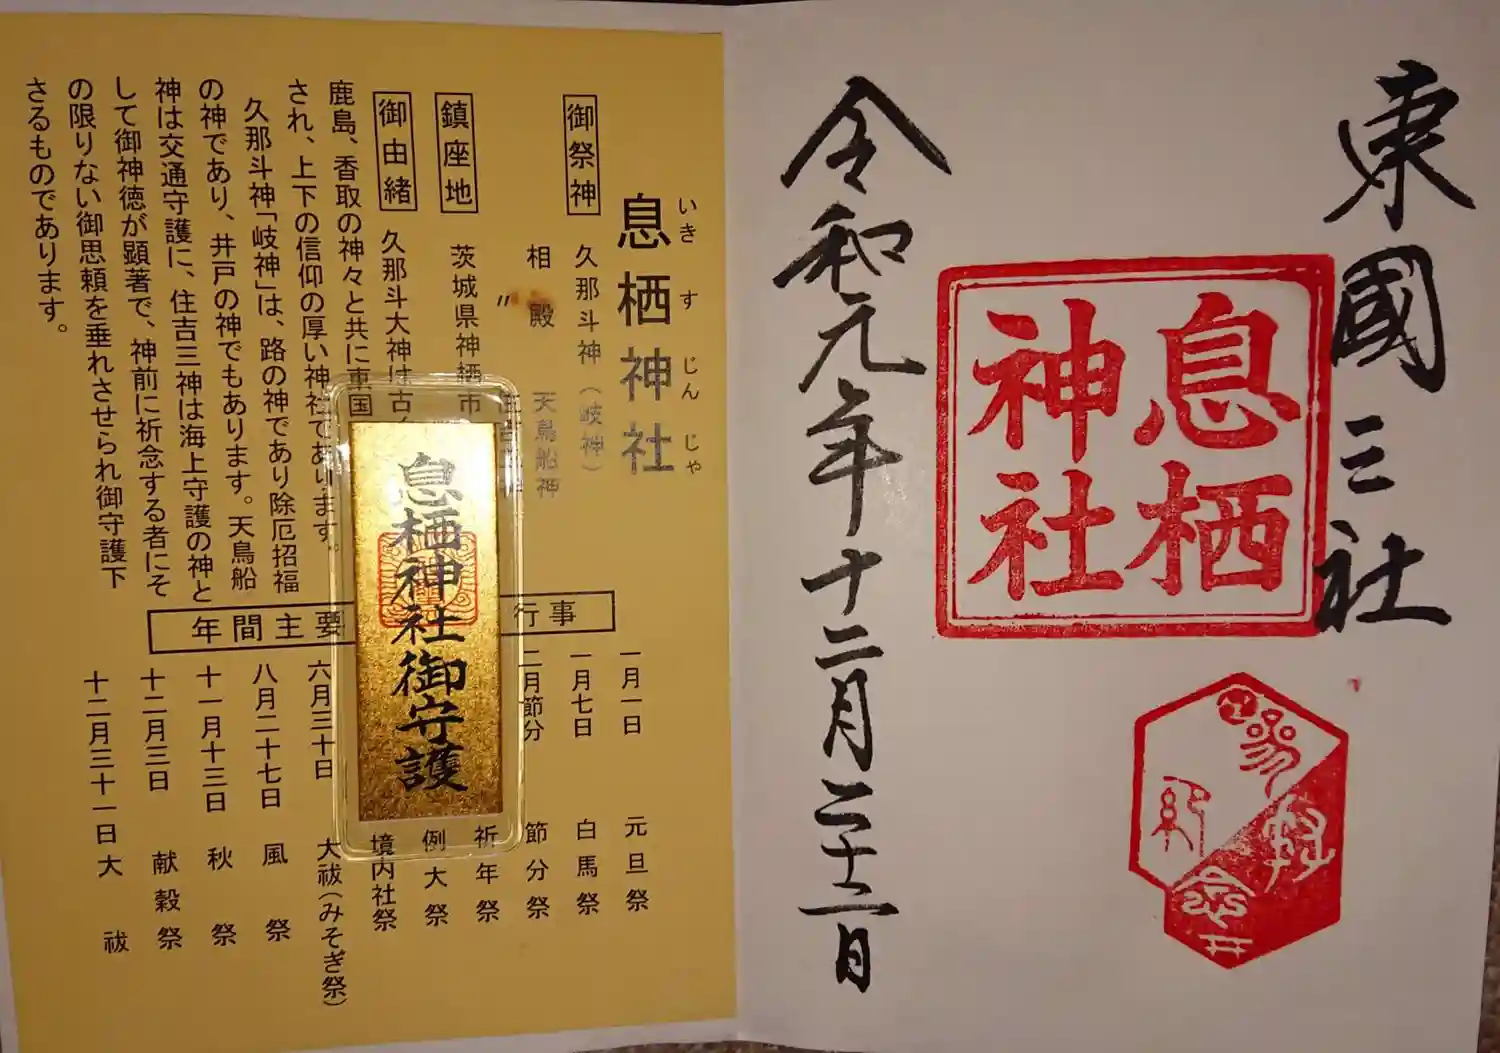 東國三社
息栖
神社
参拝
紀念
令和元年十二月二十二日
いきすじんじゃ
息栖神社
御祭神
久那斗神(岐神)
相殿 天鳥船神
〃
鎮座地
茨城県神栖市
御由緒
久那斗大神は古
鹿島、香取の神々と共に東国
され、上下の信仰の厚い神社であります。
久那斗神「岐神」は、路の神であり除厄招福
の神であり、井戸の神でもあります。天鳥船
神は交通守護に、住吉三神は海上守護の神と
して御神徳が顕著で、神前に祈念する者にそ
の限りない御恩頼を垂れさせられ御守護下
さるものであります。
息栖神社御守護
年間主要行事
一月一日 元旦祭
一月七日 白馬祭
二月節分 節分祭
祈年祭
例大祭
境内社祭
六月三十日 大祓(みそぎ祭)
八月二十七日 風祭
十一月十三日 秋祭
十二月三日 献穀祭
十二月三十一日 大祓